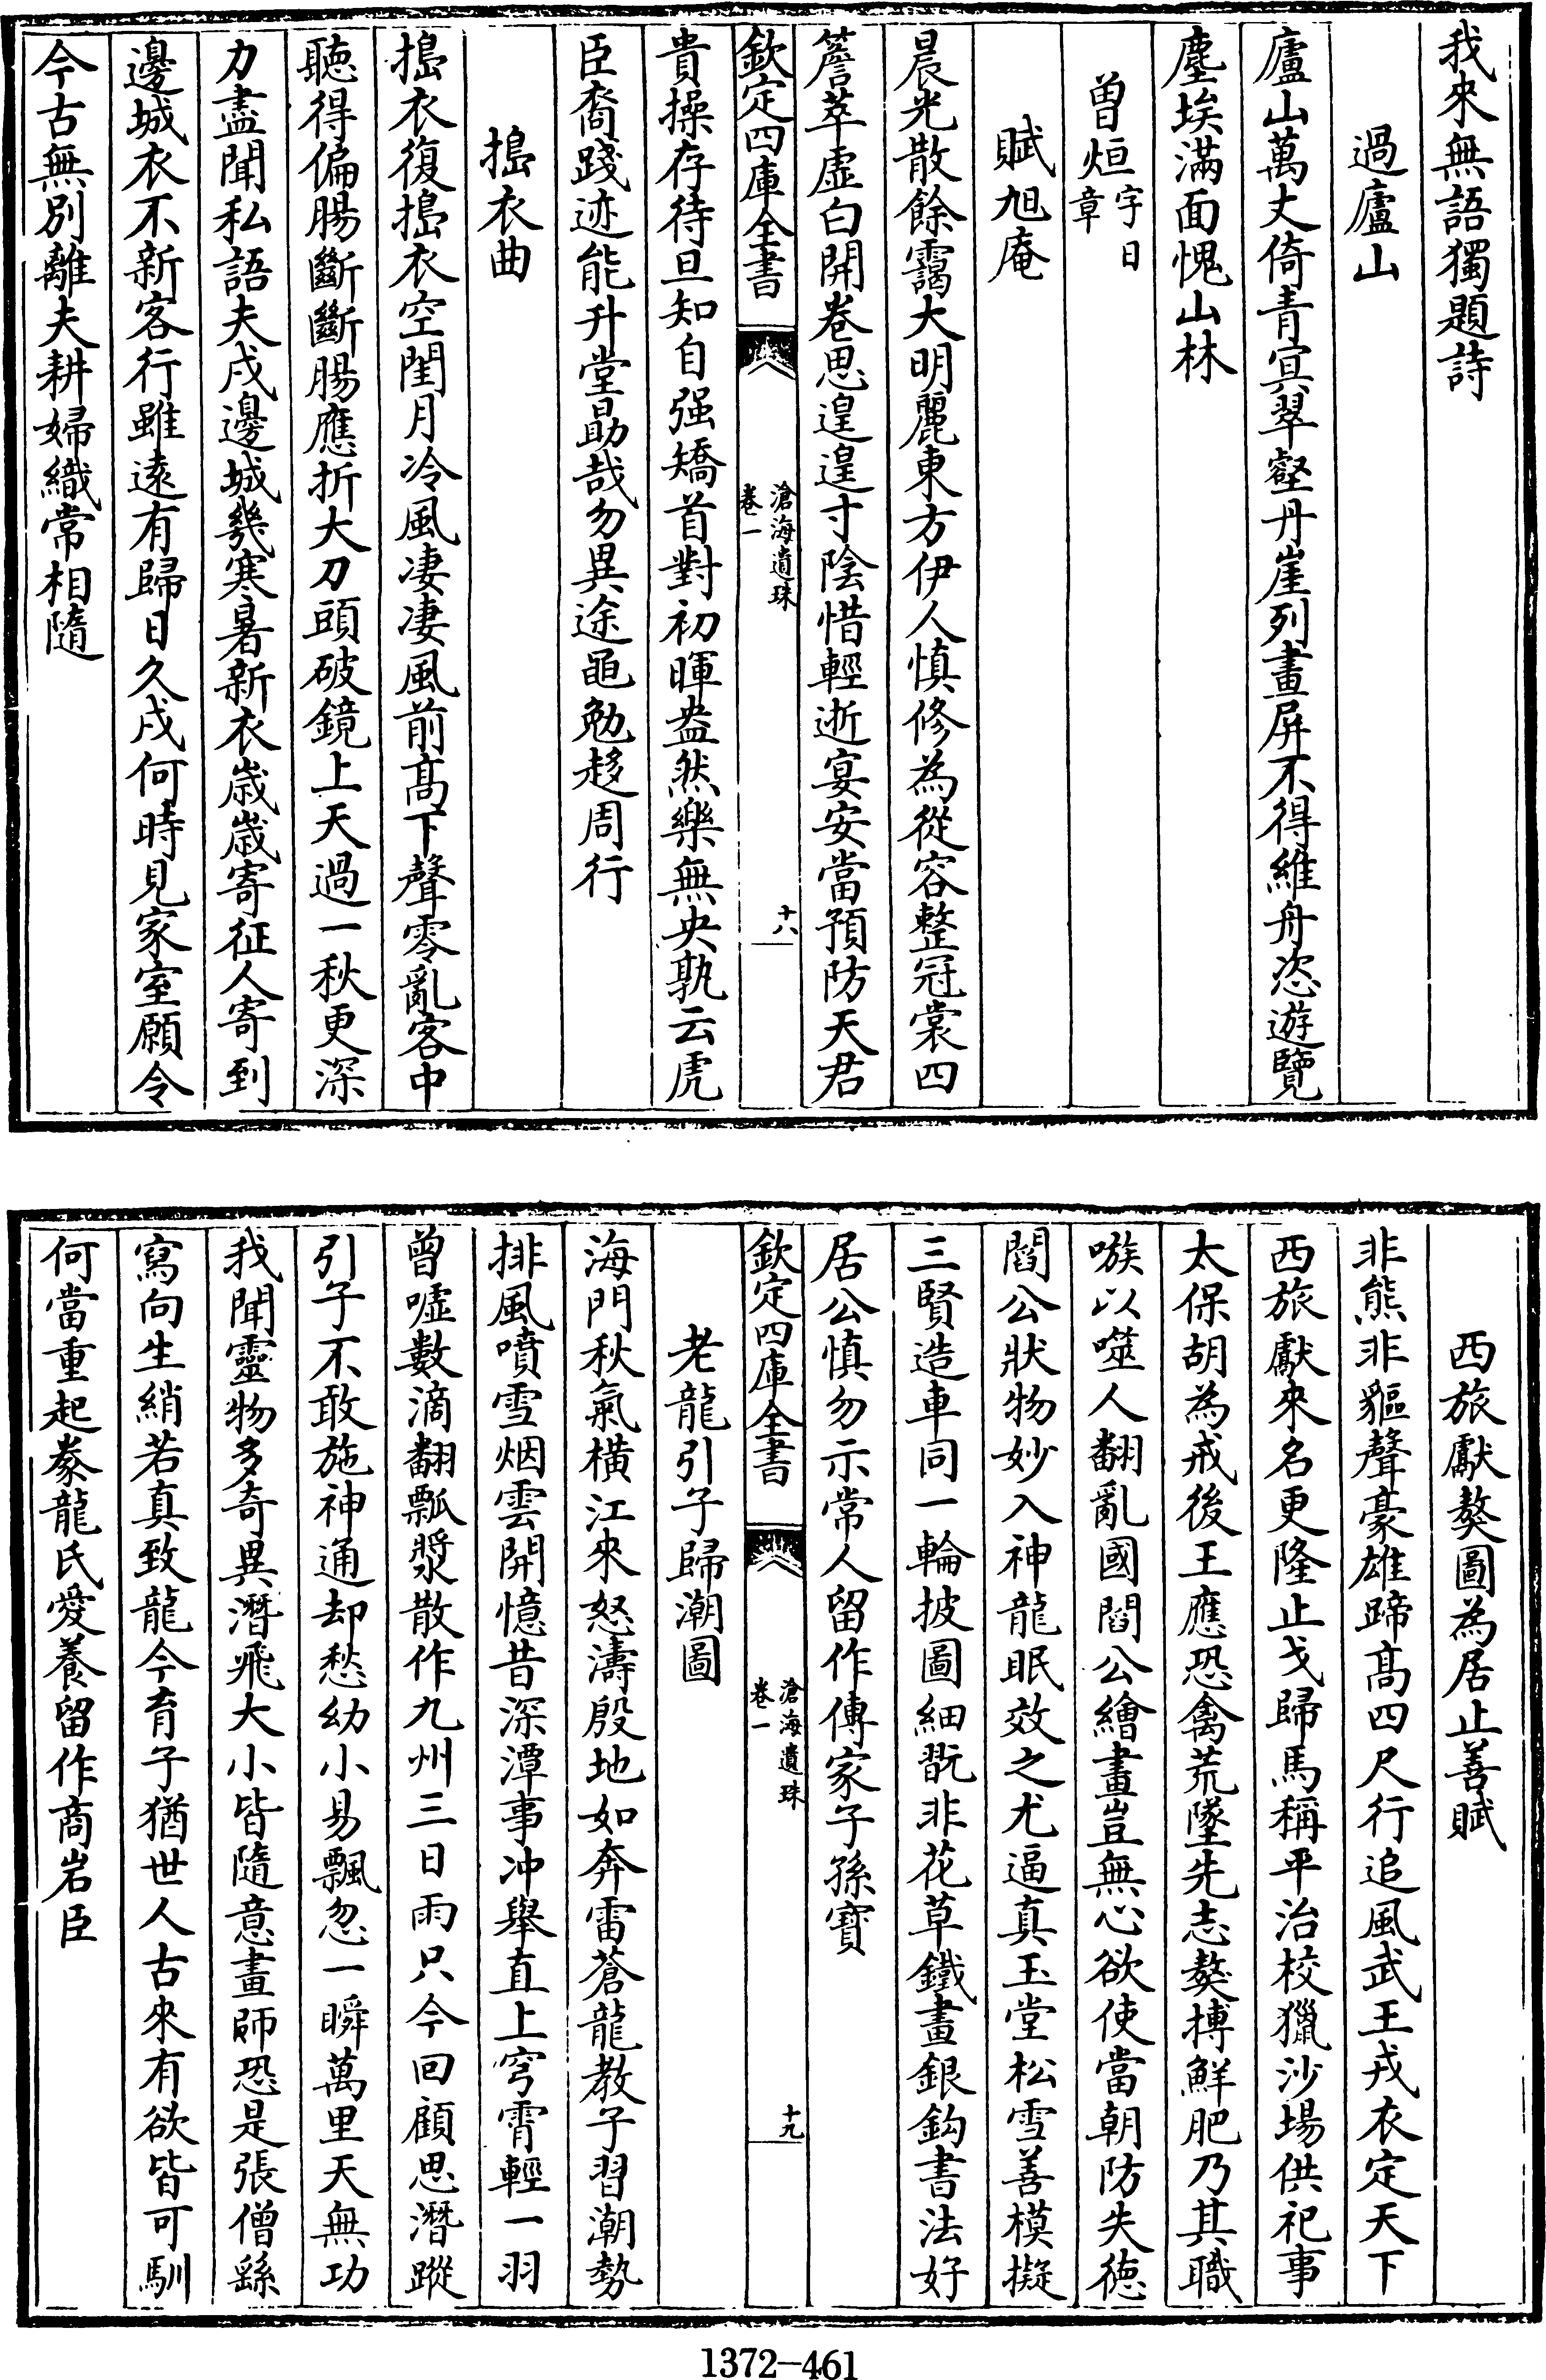 我來無語獨題詩
過廬山
廬山萬丈倚青㝠翠壑丹崖列畫屏不得維舟恣遊覽
塵埃滿面愧山林
曽烜字日章
賦旭庵
晨光散餘靄大明麗東方伊人慎修為從容整冠裳四
簷萃虚白開卷思遑遑寸陰惜輕逝宴安當預防天君
欽定四庫全書
滄海遺珠
卷一
十八
貴操存待旦知自强矯首對初暉盎然樂無央孰云虎
臣裔踐迹能升堂勗哉勿異途黽勉趍周行
搗衣曲
搗衣復搗衣空閨月冷風凄凄風前髙下聲零亂客中
聽得偏腸斷斷腸應折大刀頭破鏡上天過一秋更深
力盡聞私語夫戍邊城幾寒暑新衣歳歳寄征人寄到
邊城衣不新客行雖遠有歸日久戍何時見家室願令
今古無別離夫耕婦織常相隨
西旅獻獒圖為居止善賦
非熊非貙聲豪雄蹄髙四尺行追風武王戎衣定天下
西旅獻來名更隆止戈歸馬稱平治校獵沙場供祀事
太保胡為戒後王應恐禽荒墜先志獒摶鮮肥乃其職
嗾以噬人翻亂國閻公繪畫豈無心欲使當朝防失徳
閻公狀物妙入神龍眠效之尤逼真玉堂松雪善模擬
三賢造車同一輪披圖細翫非花草鐵畫銀鈎書法好
居公慎勿示常人留作傳家子孫寳
欽定四庫全書
滄海遺珠
卷一
十九
老龍引子歸潮圖
海門秋氣橫江來怒濤殷地如奔雷蒼龍教子習潮勢
排風噴雪烟雲開憶昔深潭事冲舉直上穹霄輕一羽
曾噓數滴翻瓢漿散作九州三日雨只今回顧思潛蹤
引子不敢施神通却愁幼小易飄忽一瞬萬里天無功
我聞靈物多奇異潛飛大小皆隨意畫師恐是張僧繇
寫向生綃若真致龍今育子猶世人古來有欲皆可馴
何當重起豢龍氏愛養留作商岩臣
1372-461